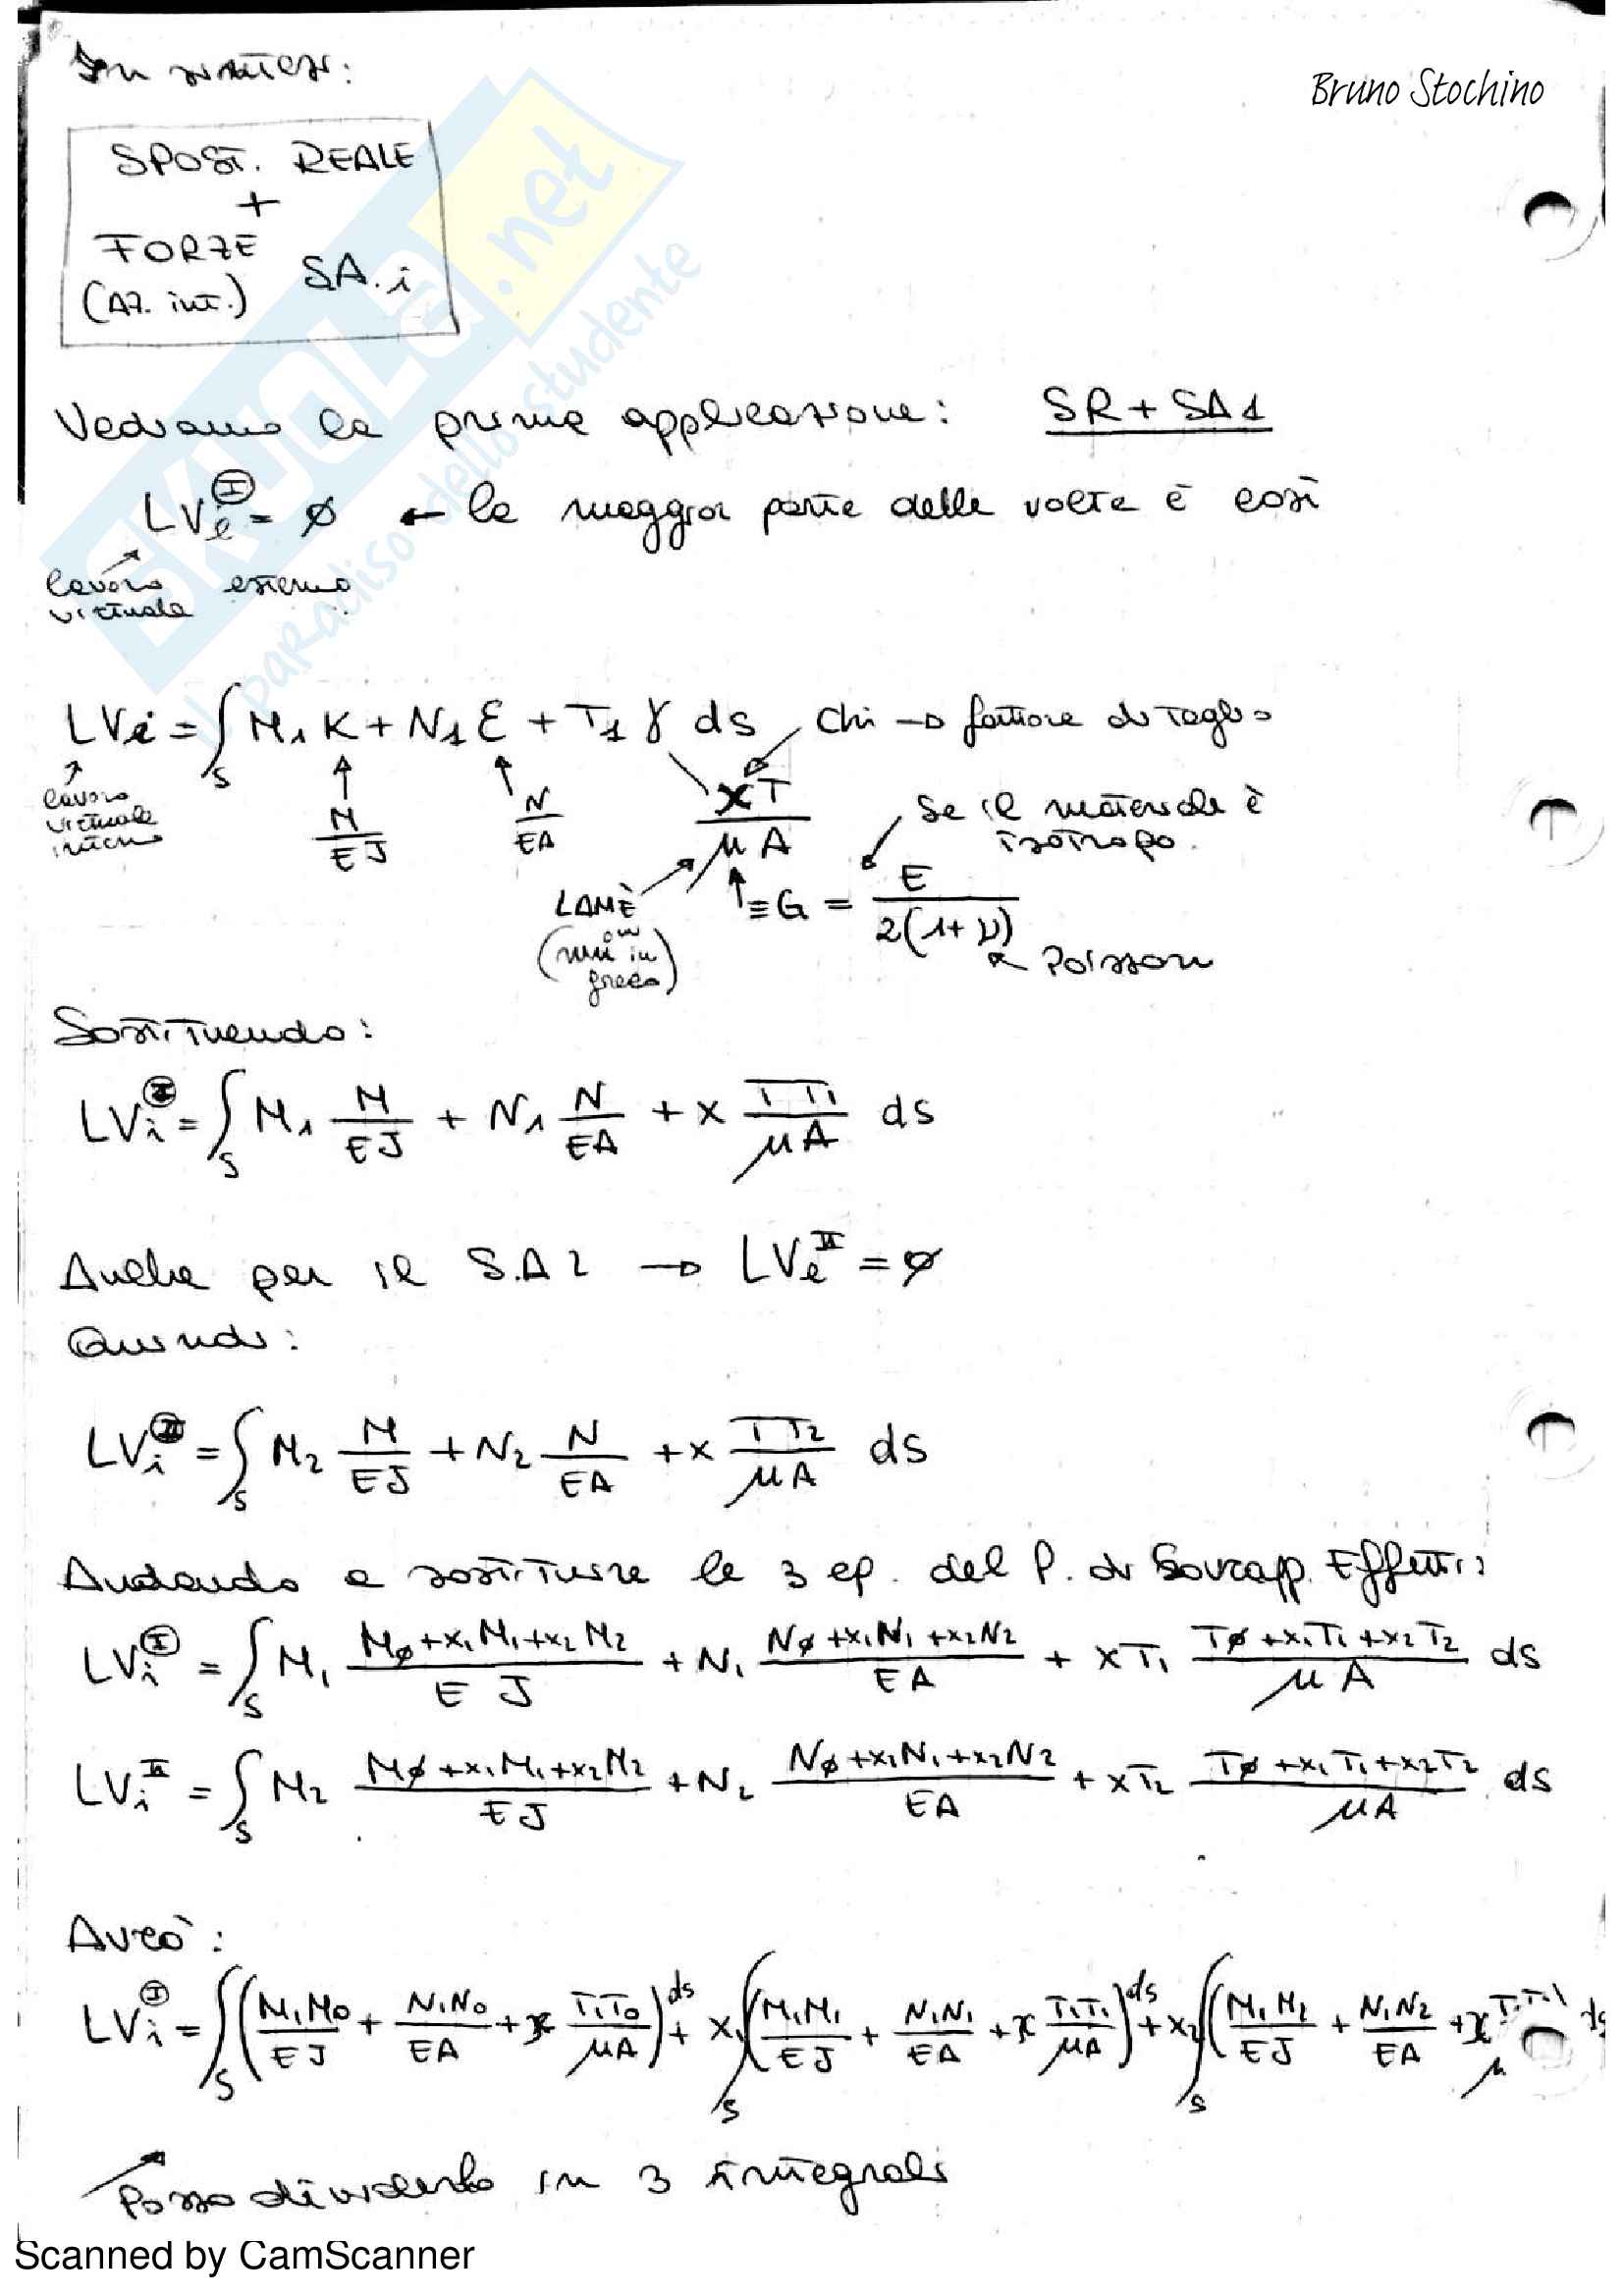 In sintesi:
Bruno Stochino
SPOST. REALE
+
FORZE
(AZ. int.) SA.i
SKUOLA.net
il paradiso dello studente
Vediamo la prima applicazione: SR + SA1
LVe^(I) = ø ← la maggior parte delle volte è così
lavoro esterno
virtuale
LVi = ∫s M1 K + N1 ε + T1 γ ds
chi → fattore di taglio
lavoro
virtuale
interno
M/EJ
N/EA
χT/μA
se il materiale è
isotropo.
LAMÈ
(mu in
greco)
≡G = E/2(1+ν)
Poisson
Sostituendo:
LVi^(I) = ∫s M1 M/EJ + N1 N/EA + χ T T1/μA ds
Anche per il S.A 2 → LVe^II = ø
Quindi:
LVi^(II) = ∫s M2 M/EJ + N2 N/EA + χ T T2/μA ds
Andando a sostituire le 3 eq. del P. di Sovrapp. Effetti:
LVi^(I) = ∫s M1 (Mø+x1M1+x2M2)/EJ + N1 (Nø+x1N1+x2N2)/EA + χT1 (Tø+x1T1+x2T2)/μA ds
LVi^II = ∫s M2 (Mø+x1M1+x2M2)/EJ + N2 (Nø+x1N1+x2N2)/EA + χT2 (Tø+x1T1+x2T2)/μA ds
Avrò:
LVi^(I) = ∫s (M1M0/EJ + N1N0/EA + χ T1T0/μA) ds + x1 ∫s (M1M1/EJ + N1N1/EA + χ T1T1/μA) ds + x2 ∫s (M1M2/EJ + N1N2/EA + χ
Posso dividerlo in 3 integrali
Scanned by CamScanner